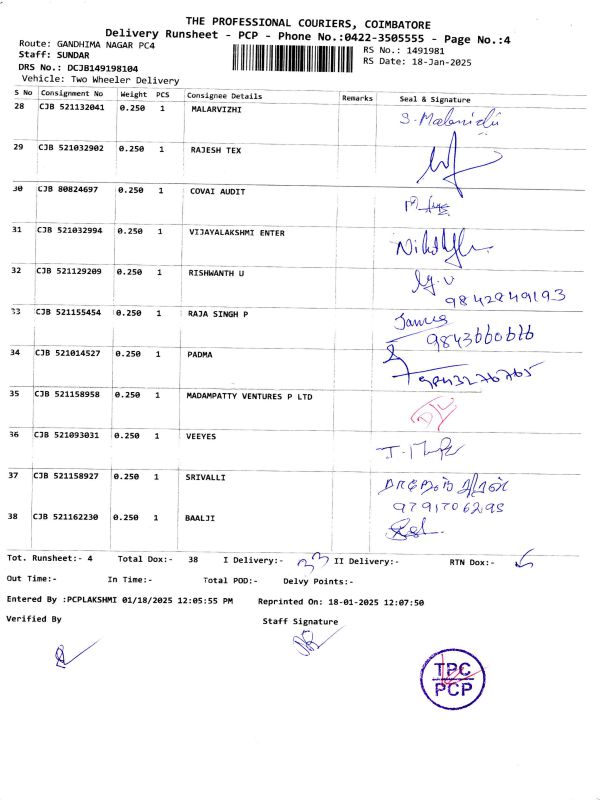 THE PROFESSIONAL COURIERS, COIMBATORE
Delivery Runsheet - PCP - Phone No.:0422-3505555 - Page No.:4
Route: GANDHIMA NAGAR PC4 RS No.: 1491981
Staff: SUNDAR RS Date: 18-Jan-2025
DRS No.: DCJB149198104
Vehicle: Two Wheeler Delivery
S No Consignment No Weight PCS Consignee Details Remarks Seal & Signature
28 CJB 521132041 0.250 1 MALARVIZHI
29 CJB 521032902 0.250 1 RAJESH TEX
30 CJB 80824697 0.250 1 COVAI AUDIT
31 CJB 521032994 0.250 1 VIJAYALAKSHMI ENTER
32 CJB 521129209 0.250 1 RISHWANTH U
9842849193
33 CJB 521155454 0.250 1 RAJA SINGH P
9843660666
34 CJB 521014527 0.250 1 PADMA
9843276765
35 CJB 521158958 0.250 1 MADAMPATTY VENTURES P LTD
36 CJB 521093031 0.250 1 VEEYES
37 CJB 521158927 0.250 1 SRIVALLI
9791706295
38 CJB 521162230 0.250 1 BAALJI
Tot. Runsheet:- 4 Total Dox:- 38 I Delivery:- 33 II Delivery:- RTN Dox:- 5
Out Time:- In Time:- Total POD:- Delvy Points:-
Entered By :PCPLAKSHMI 01/18/2025 12:05:55 PM Reprinted On: 18-01-2025 12:07:50
Verified By Staff Signature
TPC
PCP